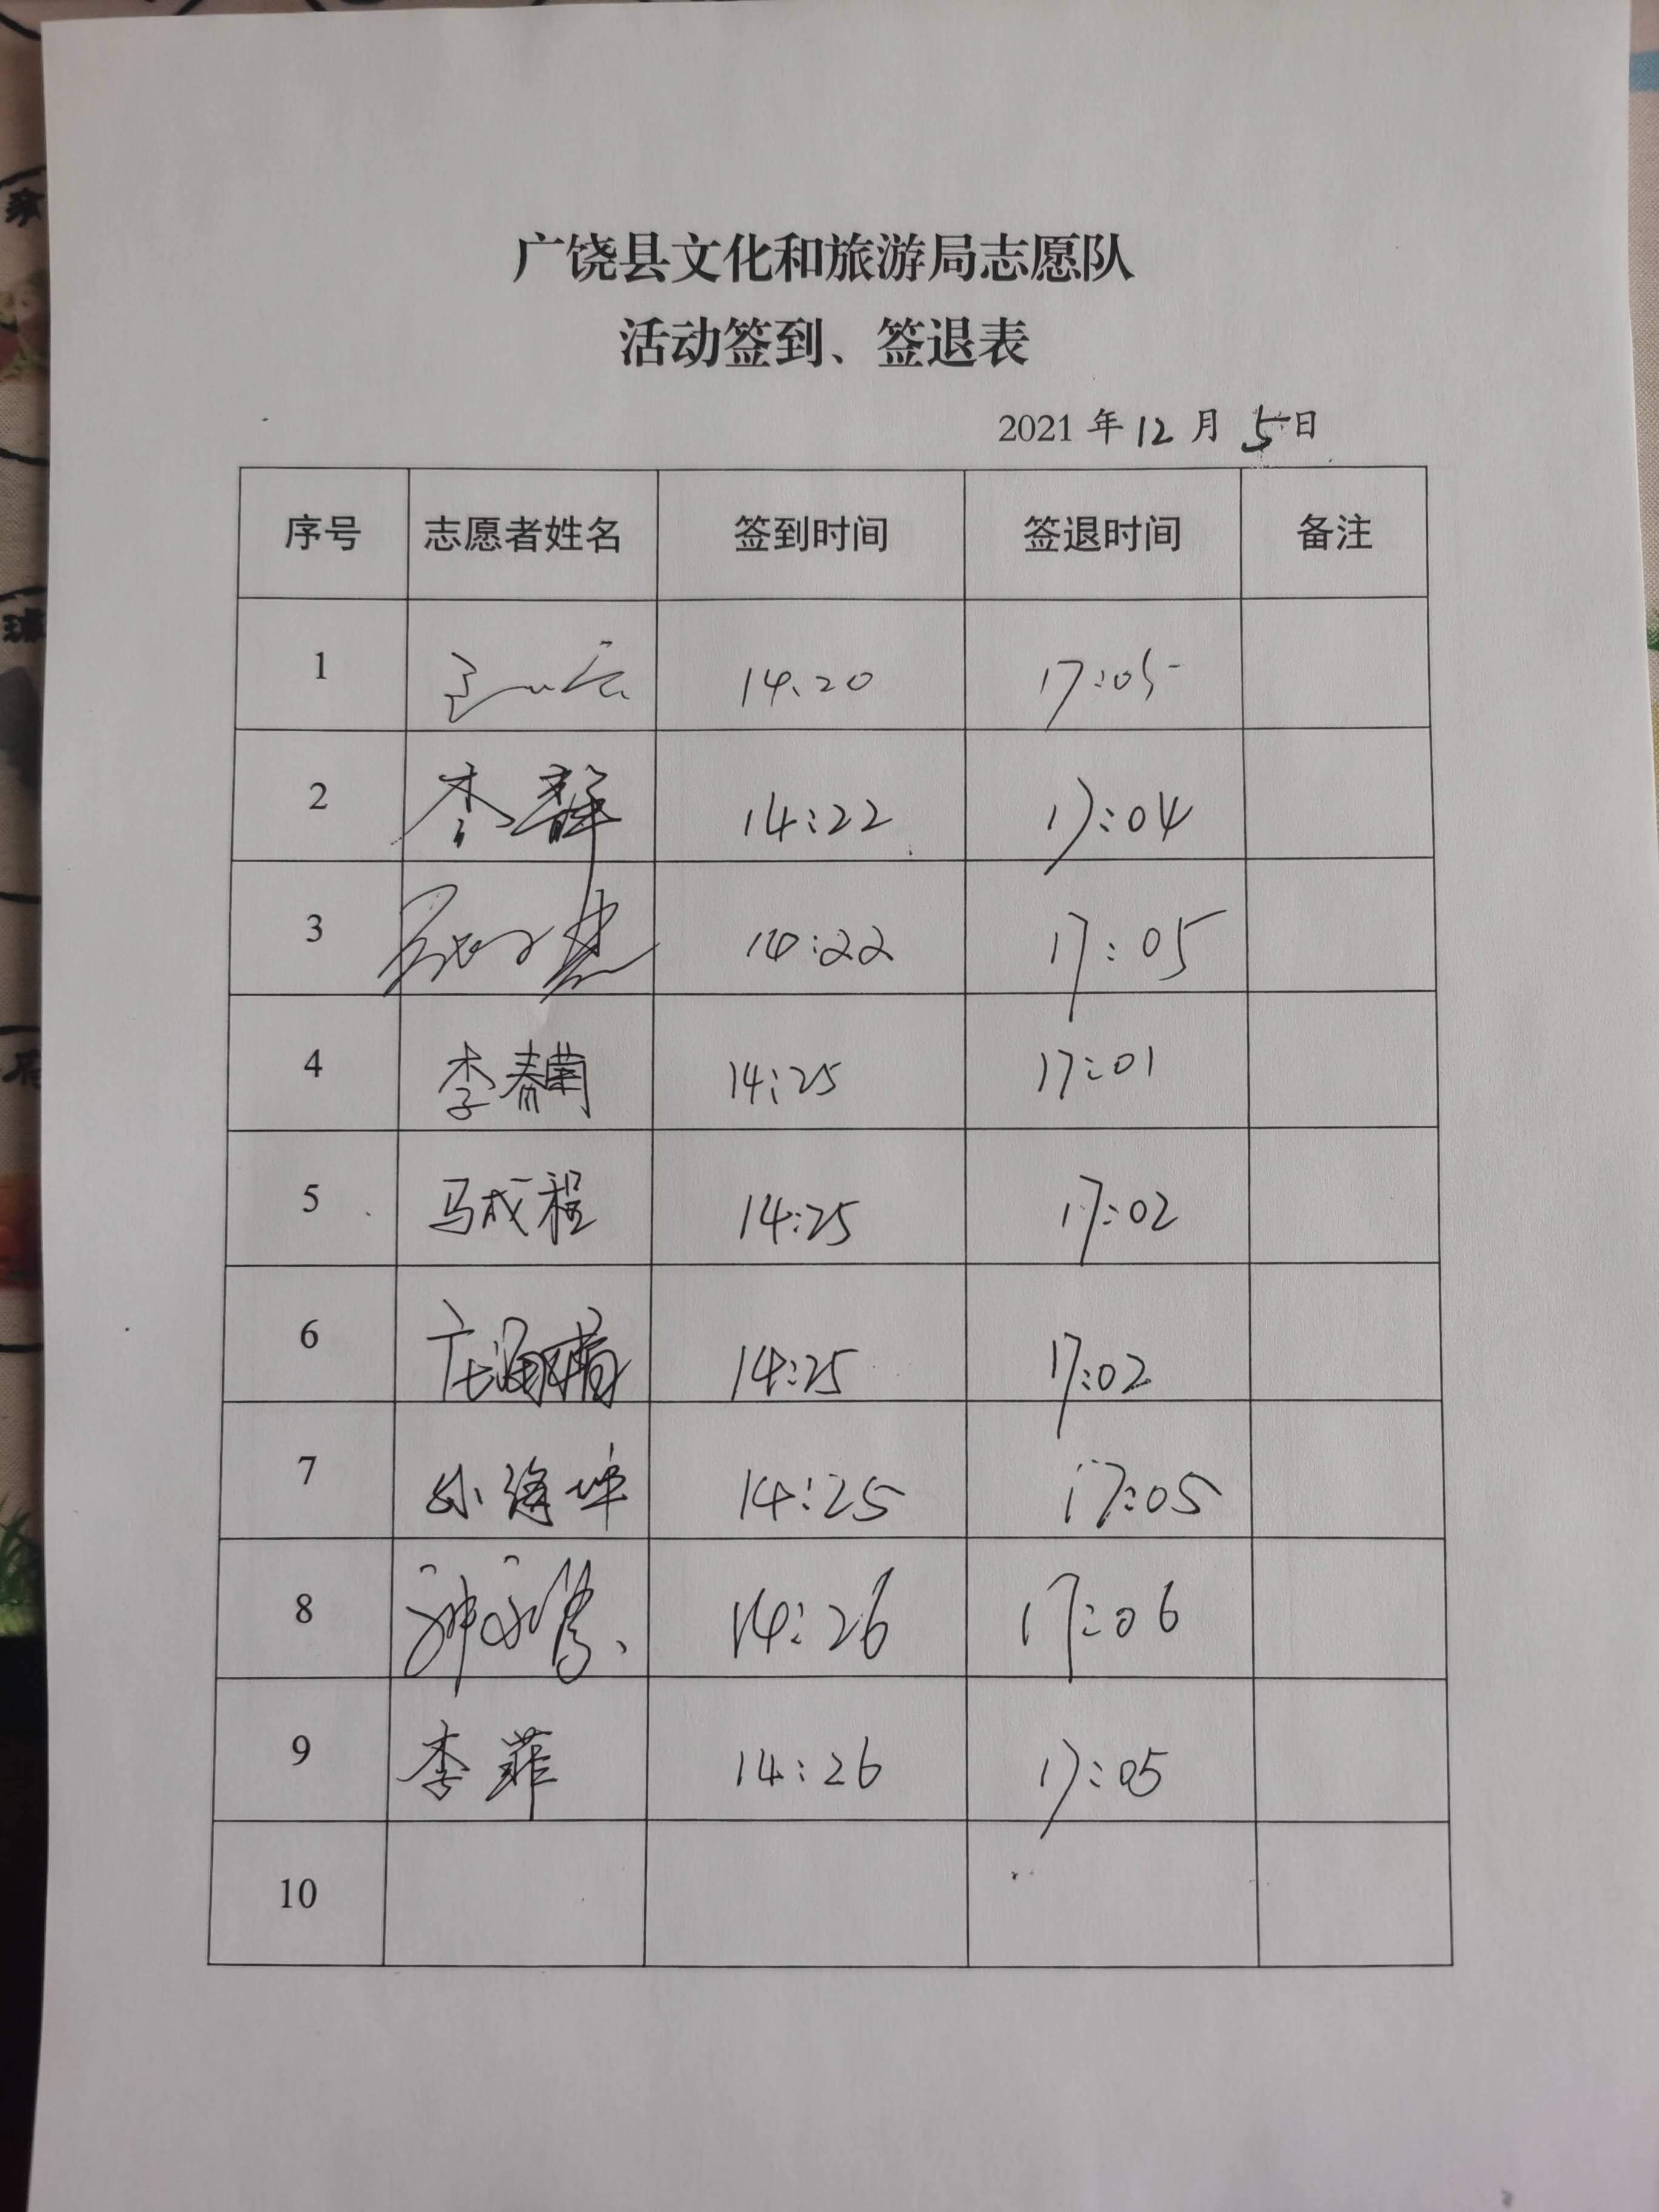 广饶县文化和旅游局志愿队
活动签到、签退表
2021 年 12 月 5 日
序号 志愿者姓名 签到时间 签退时间 备注
1 14:20 17:05
2 李群 14:22 17:04
3 14:22 17:05
4 李 14:25 17:01
5 马成程 14:25 17:02
6 庄海 14:25 17:02
7 孙海坤 14:25 17:05
8 14:26 17:06
9 李菲 14:26 17:05
10